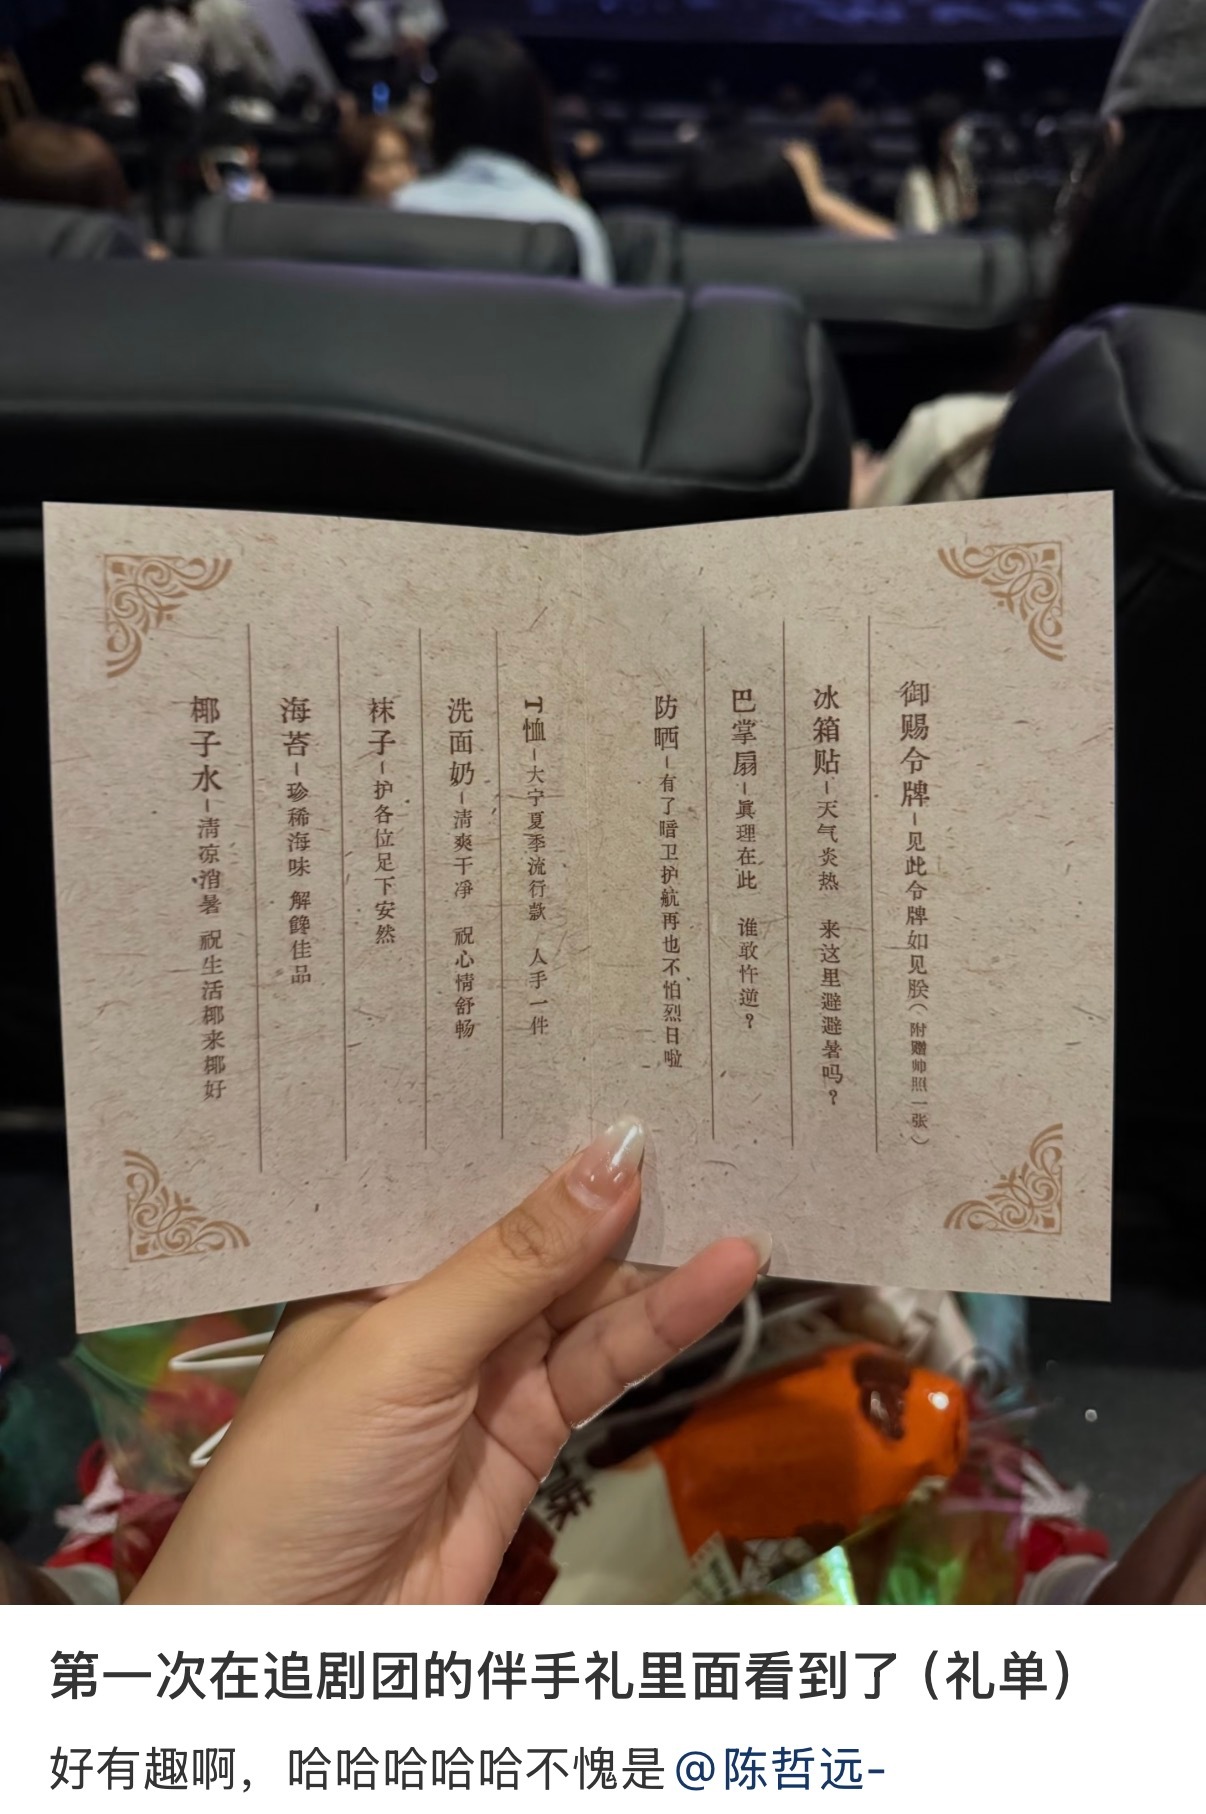 御赐令牌-见此令牌如见朕（附赠帅照一张）
冰箱贴-天气炎热 来这里避避暑吗？
巴掌扇-真理在此 谁敢忤逆？
防晒-有了暗卫护航再也不怕烈日啦
T恤-大宁夏季流行款 人手一件
洗面奶-清爽干净 祝心情舒畅
袜子-护各位足下安然
海苔-珍稀海味 解馋佳品
椰子水-清凉消暑 祝生活椰来椰好
味
第一次在追剧团的伴手礼里面看到了（礼单）
好有趣啊，哈哈哈哈哈不愧是@陈哲远-